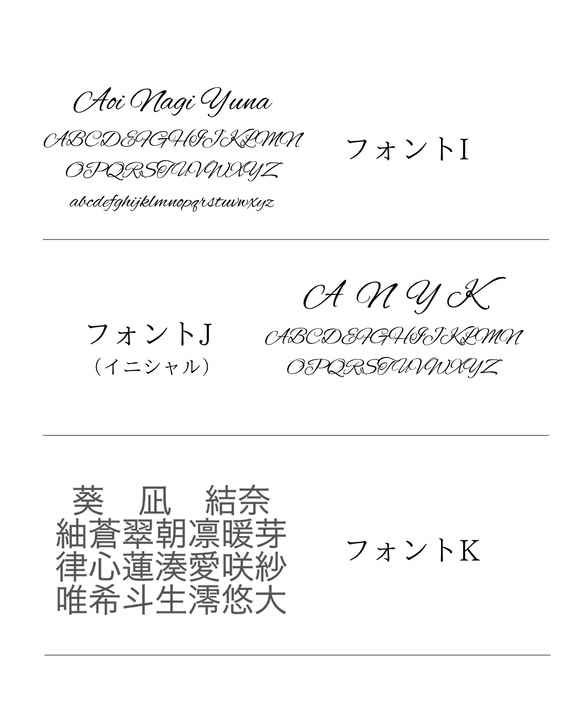 Aoi Nagi Yuna
ABCDEFGHIJKLMN
OPQRSTUVWXYZ
abcdefghijklmnopqrstuvwxyz
フォントI
フォントJ
（イニシャル）
A N Y K
ABCDEFGHIJKLMN
OPQRSTUVWXYZ
葵 凪 結奈
紬蒼翠朝凛暖芽
律心蓮湊愛咲紗
唯希斗生澪悠大
フォントK